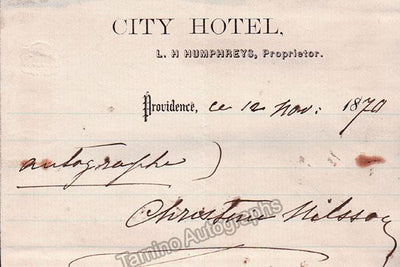 CITY HOTEL,
L. H HUMPHREYS, Proprietor.
Providence, ce 12 Nov: 1870
autographe )
Christine Nilsson
Tamino Autographs